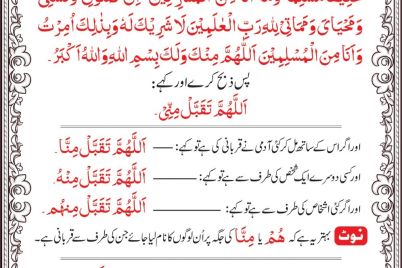 وَمَحْيَایَ وَمَمَاتِیْ لِلّٰهِ رَبِّ الْعٰلَمِيْنَ لَا شَرِيْكَ لَهٗ وَبِذٰلِكَ اُمِرْتُ
وَاَنَا مِنَ الْمُسْلِمِيْنَ اَللّٰهُمَّ مِنْكَ وَلَكَ بِسْمِ اللّٰهِ وَاللّٰهُ اَكْبَرُ.
پس ذبح کرے اور کہے:
اَللّٰهُمَّ تَقَبَّلْ مِنِّیْ.
اور اگر اس کے ساتھ مل کر کئی آدمی نے قربانی کی ہے تو کہے: ——— اَللّٰهُمَّ تَقَبَّلْ مِنَّا.
اور کسی دوسرے ایک شخص کی طرف سے ہے تو کہے: ——— اَللّٰهُمَّ تَقَبَّلْ مِنْهُ.
اور اگر کئی اشخاص کی طرف سے ہے تو کہے: ——— اَللّٰهُمَّ تَقَبَّلْ مِنْهُمْ.
نوٹ بہتر یہ ہے کہ هُمْ یا مِنَّا کی جگہ پر اُن لوگوں کا نام لیا جائے جن کی طرف سے قربانی ہے۔